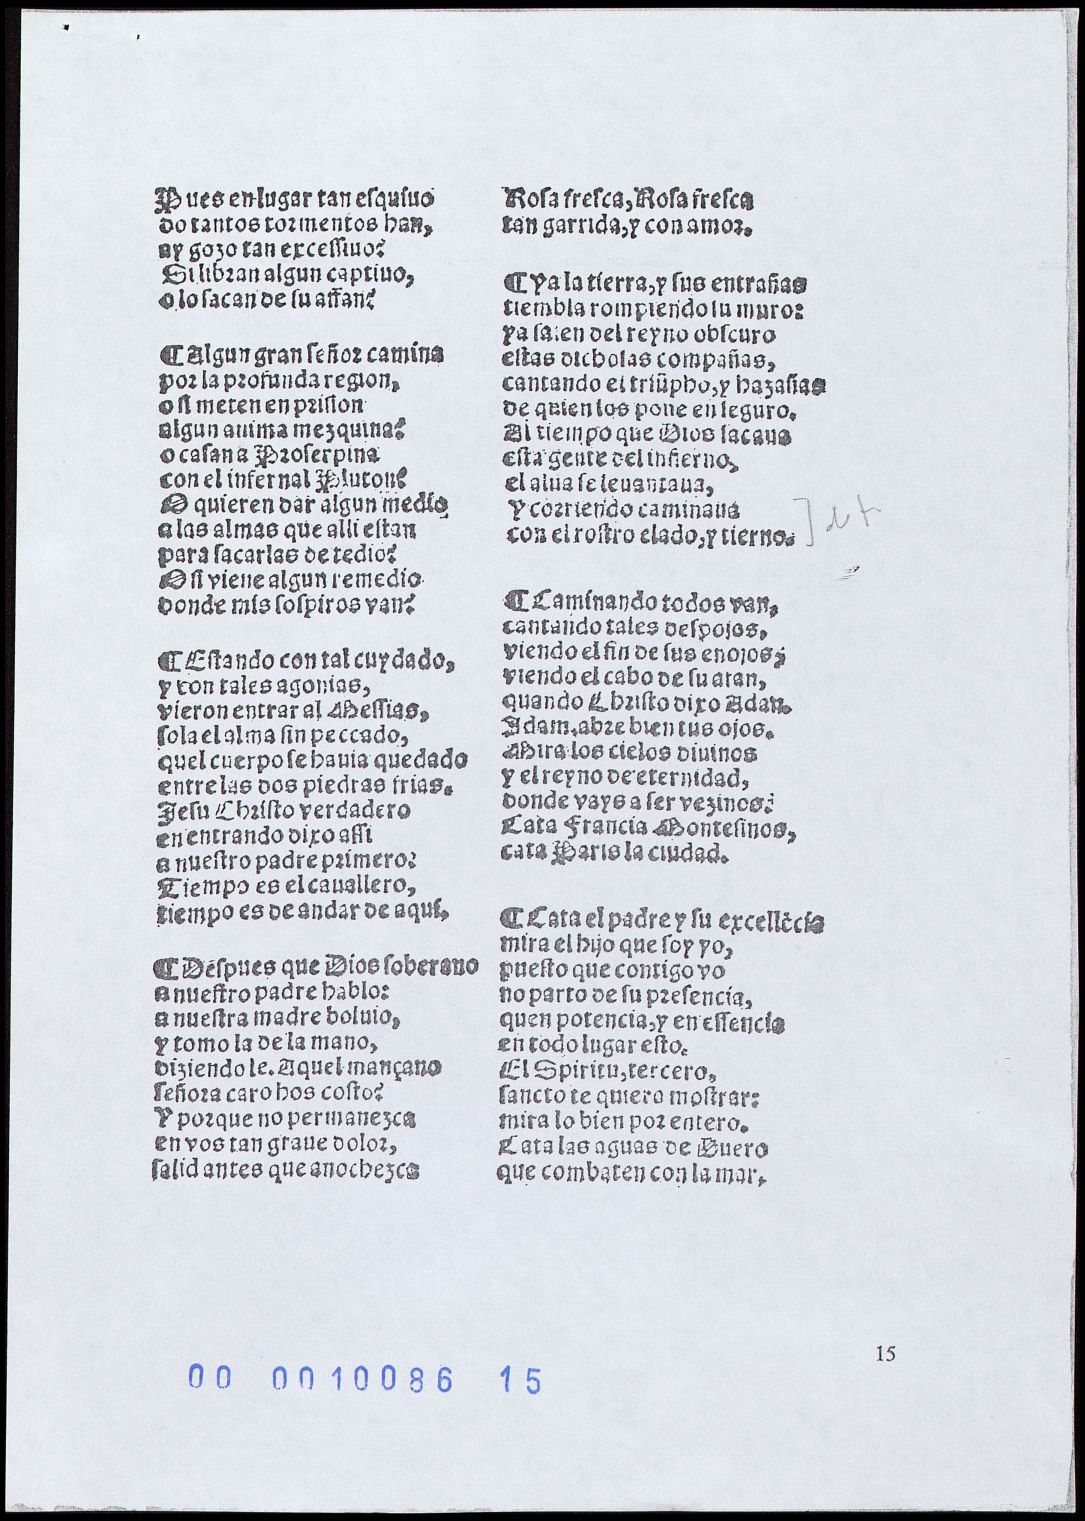 Pues en lugar tan esquiuo
do tantos tormentos han,
ay gozo tan excessiuo?
Si libran algun captiuo,
o lo sacan de su affan?
¶ Algun gran señor camina
por la profunda region,
o si meten en prision
algun anima mezquina?
o casan a Proserpina
con el infernal Pluton?
O quieren dar algun medio
a las almas que alli estan
para sacarlas de tedio?
O si viene algun remedio
donde mis sospiros van?
¶ Estando con tal cuydado,
y con tales agonias,
vieron entrar al Messias,
sola el alma sin peccado,
quel cuerpo se hauia quedado
entre las dos piedras frias.
Jesu Christo verdadero
en entrando dixo assi
a nuestro padre primero:
Tiempo es el cauallero,
tiempo es de andar de aqui,
¶ Despues que Dios soberano
a nuestro padre hablo:
a nuestra madre boluio,
y tomo la de la mano,
diziendo le. Aquel mançano
señora caro hos costo?
Y porque no permanezca
en vos tan graue dolor,
salid antes que anochezca
Rosa fresca, Rosa fresca
tan garrida, y con amor.
¶ Ya la tierra, y sus entrañas
tiembla rompiendo su muro:
ya salen del reyno obscuro
estas dichosas compañas,
cantando el triũpho, y hazañas
de quien los pone en seguro.
Al tiempo que Dios sacaua
esta gente del infierno,
el alua se leuantaua,
y corriendo caminaua
con el rostro elado, y tierno.
¶ Caminando todos van,
cantando tales despojos,
viendo el fin de sus enojos,
viendo el cabo de su afan,
quando Christo dixo Adan.
Adam, abre bien tus ojos.
Mira los cielos diuinos
y el reyno de eternidad,
donde vays a ser vezinos:
Cata Francia Montesinos,
cata Paris la ciudad.
¶ Cata el padre y su excellẽcia
mira el hijo que soy yo,
puesto que contigo vo
no parto de su presencia,
quen potencia, y en essencia
en todo lugar esto.
El Spiritu, tercero,
sancto te quiero mostrar:
mira lo bien por entero.
Cata las aguas de Duero
que combaten con la mar,
15
00 0010086 15